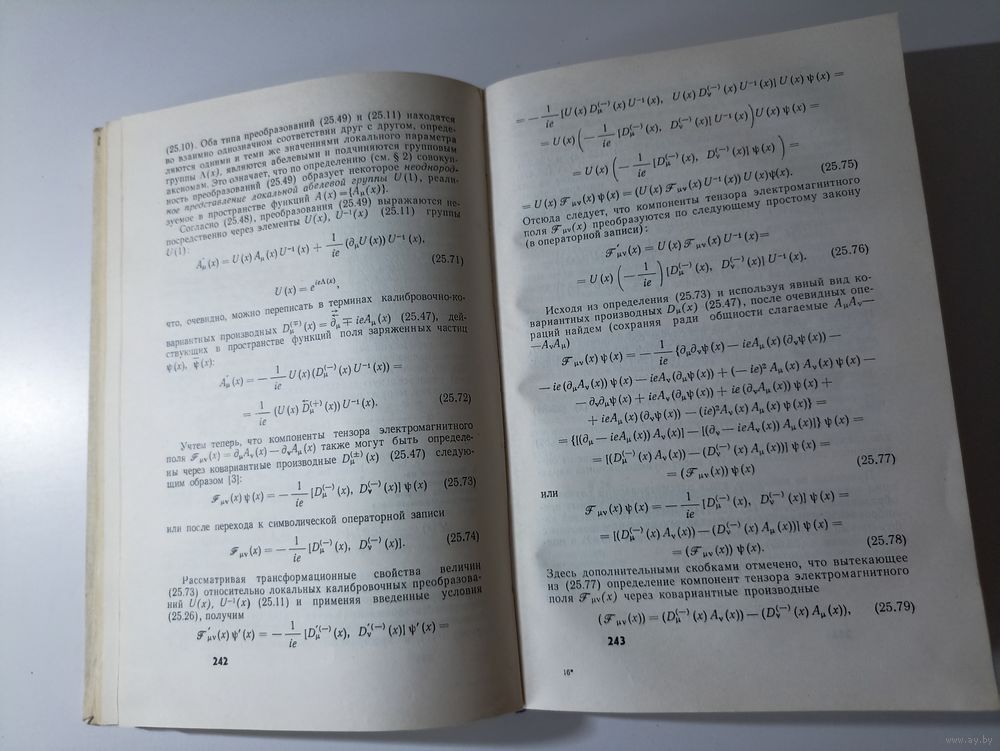 (25.10). Оба типа преобразований (25.49) и (25.11) находятся
во взаимно однозначном соответствии друг с другом, опреде-
ляются одними и теми же значениями локального параметра
группы Λ(x), являются абелевыми и подчиняются групповым
аксиомам. Это означает, что по определению (см. § 2) совокуп-
ность преобразований (25.49) образует некоторое неоднород-
ное представление локальной абелевой группы U(1), реали-
зуемое в пространстве функций A(x)={Aμ(x)}.
Согласно (25.48), преобразования (25.49) выражаются не-
посредственно через элементы U(x), U⁻¹(x) (25.11) группы
U(1):
A′μ(x) = U(x) Aμ(x) U⁻¹(x) + 1/ie (∂μU(x)) U⁻¹(x),
(25.71)
U(x) = e^{ieΛ(x)},
что, очевидно, можно переписать в терминах калибровочно-ко-
вариантных производных Dμ^(∓)(x) = ∂μ ∓ ieAμ(x) (25.47), дей-
ствующих в пространстве функций поля заряженных частиц
ψ(x), ψ̄(x):
A′μ(x) = − 1/ie U(x)(Dμ^(−)(x) U⁻¹(x)) =
= 1/ie (U(x) D⃖μ^(+)(x)) U⁻¹(x). (25.72)
Учтем теперь, что компоненты тензора электромагнитного
поля ℱμν(x) = ∂μAν(x) — ∂νAμ(x) также могут быть определе-
ны через ковариантные производные Dμ^(±)(x) (25.47) следую-
щим образом [3]:
ℱμν(x) ψ(x) = − 1/ie [Dμ^(−)(x), Dν^(−)(x)] ψ(x) (25.73)
или после перехода к символической операторной записи
ℱμν(x) = − 1/ie [Dμ^(−)(x), Dν^(−)(x)]. (25.74)
Рассматривая трансформационные свойства величин
(25.73) относительно локальных калибровочных преобразова-
ний U(x), U⁻¹(x) (25.11) и применяя введенные условия
(25.26), получим
ℱ′μν(x) ψ′(x) = − 1/ie [D′μ^(−)(x), D′ν^(−)(x)] ψ′(x) =
242
= − 1/ie [U(x) Dμ^(−)(x) U⁻¹(x), U(x) Dν^(−)(x) U⁻¹(x)] U(x) ψ(x) =
= U(x) (− 1/ie [Dμ^(−)(x), Dν^(−)(x)] U⁻¹(x)) U(x) ψ(x) =
= U(x) (− 1/ie [Dμ^(−)(x), Dν^(−)(x)] ψ(x)) =
= U(x) ℱμν(x) ψ(x) = (U(x) ℱμν(x) U⁻¹(x)) U(x)ψ(x). (25.75)
Отсюда следует, что компоненты тензора электромагнитного
поля ℱμν(x) преобразуются по следующему простому закону
(в операторной записи):
ℱ′μν(x) = U(x) ℱμν(x) U⁻¹(x)=
= U(x) (− 1/ie) [Dμ^(−)(x), Dν^(−)(x)] U⁻¹(x). (25.76)
Исходя из определения (25.73) и используя явный вид ко-
вариантных производных Dμ(x) (25.47), после очевидных опе-
раций найдем (сохраняя ради общности слагаемые AμAν—
—AνAμ)
ℱμν(x) ψ(x) = − 1/ie {∂μ∂νψ(x) — ieAμ(x) (∂νψ(x)) —
— ie (∂μAν(x)) ψ(x) — ieAν(∂μψ(x)) + (—ie)² Aμ(x) Aν(x) ψ(x) —
— ∂ν∂μψ(x) + ieAν(∂μψ(x)) + ie (∂νAμ(x)) ψ(x) +
+ ieAμ(x) (∂νψ(x)) — (ie)²Aν(x) Aμ(x) ψ(x)} =
= {[(∂μ — ieAμ(x)) Aν(x)] — [(∂ν — ieAν(x)) Aμ(x)]} ψ(x) =
= [(Dμ^(−)(x) Aν(x)) — (Dν^(−)(x) Aμ(x))] ψ(x) =
= (ℱμν(x)) ψ(x) (25.77)
или
ℱμν(x) ψ(x) = − 1/ie [Dμ^(−)(x), Dν^(−)(x)] ψ(x) =
= [(Dμ^(−)(x) Aν(x)) — (Dν^(−)(x) Aμ(x))] ψ(x) =
= (ℱμν(x)) ψ(x). (25.78)
Здесь дополнительными скобками отмечено, что вытекающее
из (25.77) определение компонент тензора электромагнитного
поля ℱμν(x) через ковариантные производные
(ℱμν(x)) = (Dμ^(−)(x) Aν(x)) — (Dν^(−)(x) Aμ(x)), (25.79)
243
16*
www.ay.by